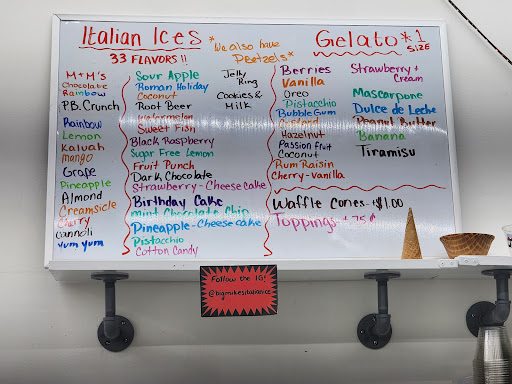 Italian Ices
33 FLAVORS!!
*We also have Pretzels*
Gelato *1 SIZE
M+M's
Chocolate
Rainbow
P.B. Crunch
Rainbow
Lemon
Kaluah
Mango
Grape
Pineapple
Almond
Creamsicle
Cherry
Cannoli
Yum Yum
Sour Apple
Roman Holiday
Coconut
Root Beer
Watermelon
Sweet Fish
Black Raspberry
Sugar Free Lemon
Fruit Punch
Dark Chocolate
Strawberry-Cheesecake
Birthday Cake
Mint Chocolate Chip
Pineapple-Cheesecake
Pistachio
Cotton Candy
Jelly
Ring
Cookies &
Milk
Berries
Vanilla
Oreo
Pistachio
Bubble Gum
Hazelnut
Passion fruit
Coconut
Rum Raisin
Cherry-Vanilla
Strawberry +
Cream
Mascarpone
Dulce de Leche
Peanut Butter
Banana
Tiramisu
Waffle Cones-+$1.00
Toppings-+75¢
Follow the IG!
@bigmikesitalianice